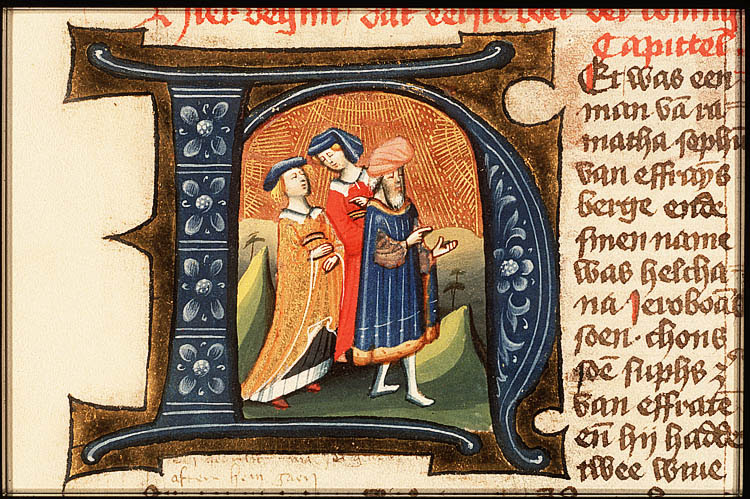 Hier beghint dat eerste boec der coning
Capittel
Et was een
man vā ra
matha sophim
van effrayms
berge ende
sinen name
was helcha
na Jeroboās
soen · thous
soē suphs
van effrate
eñ hij hadde
twee wiue